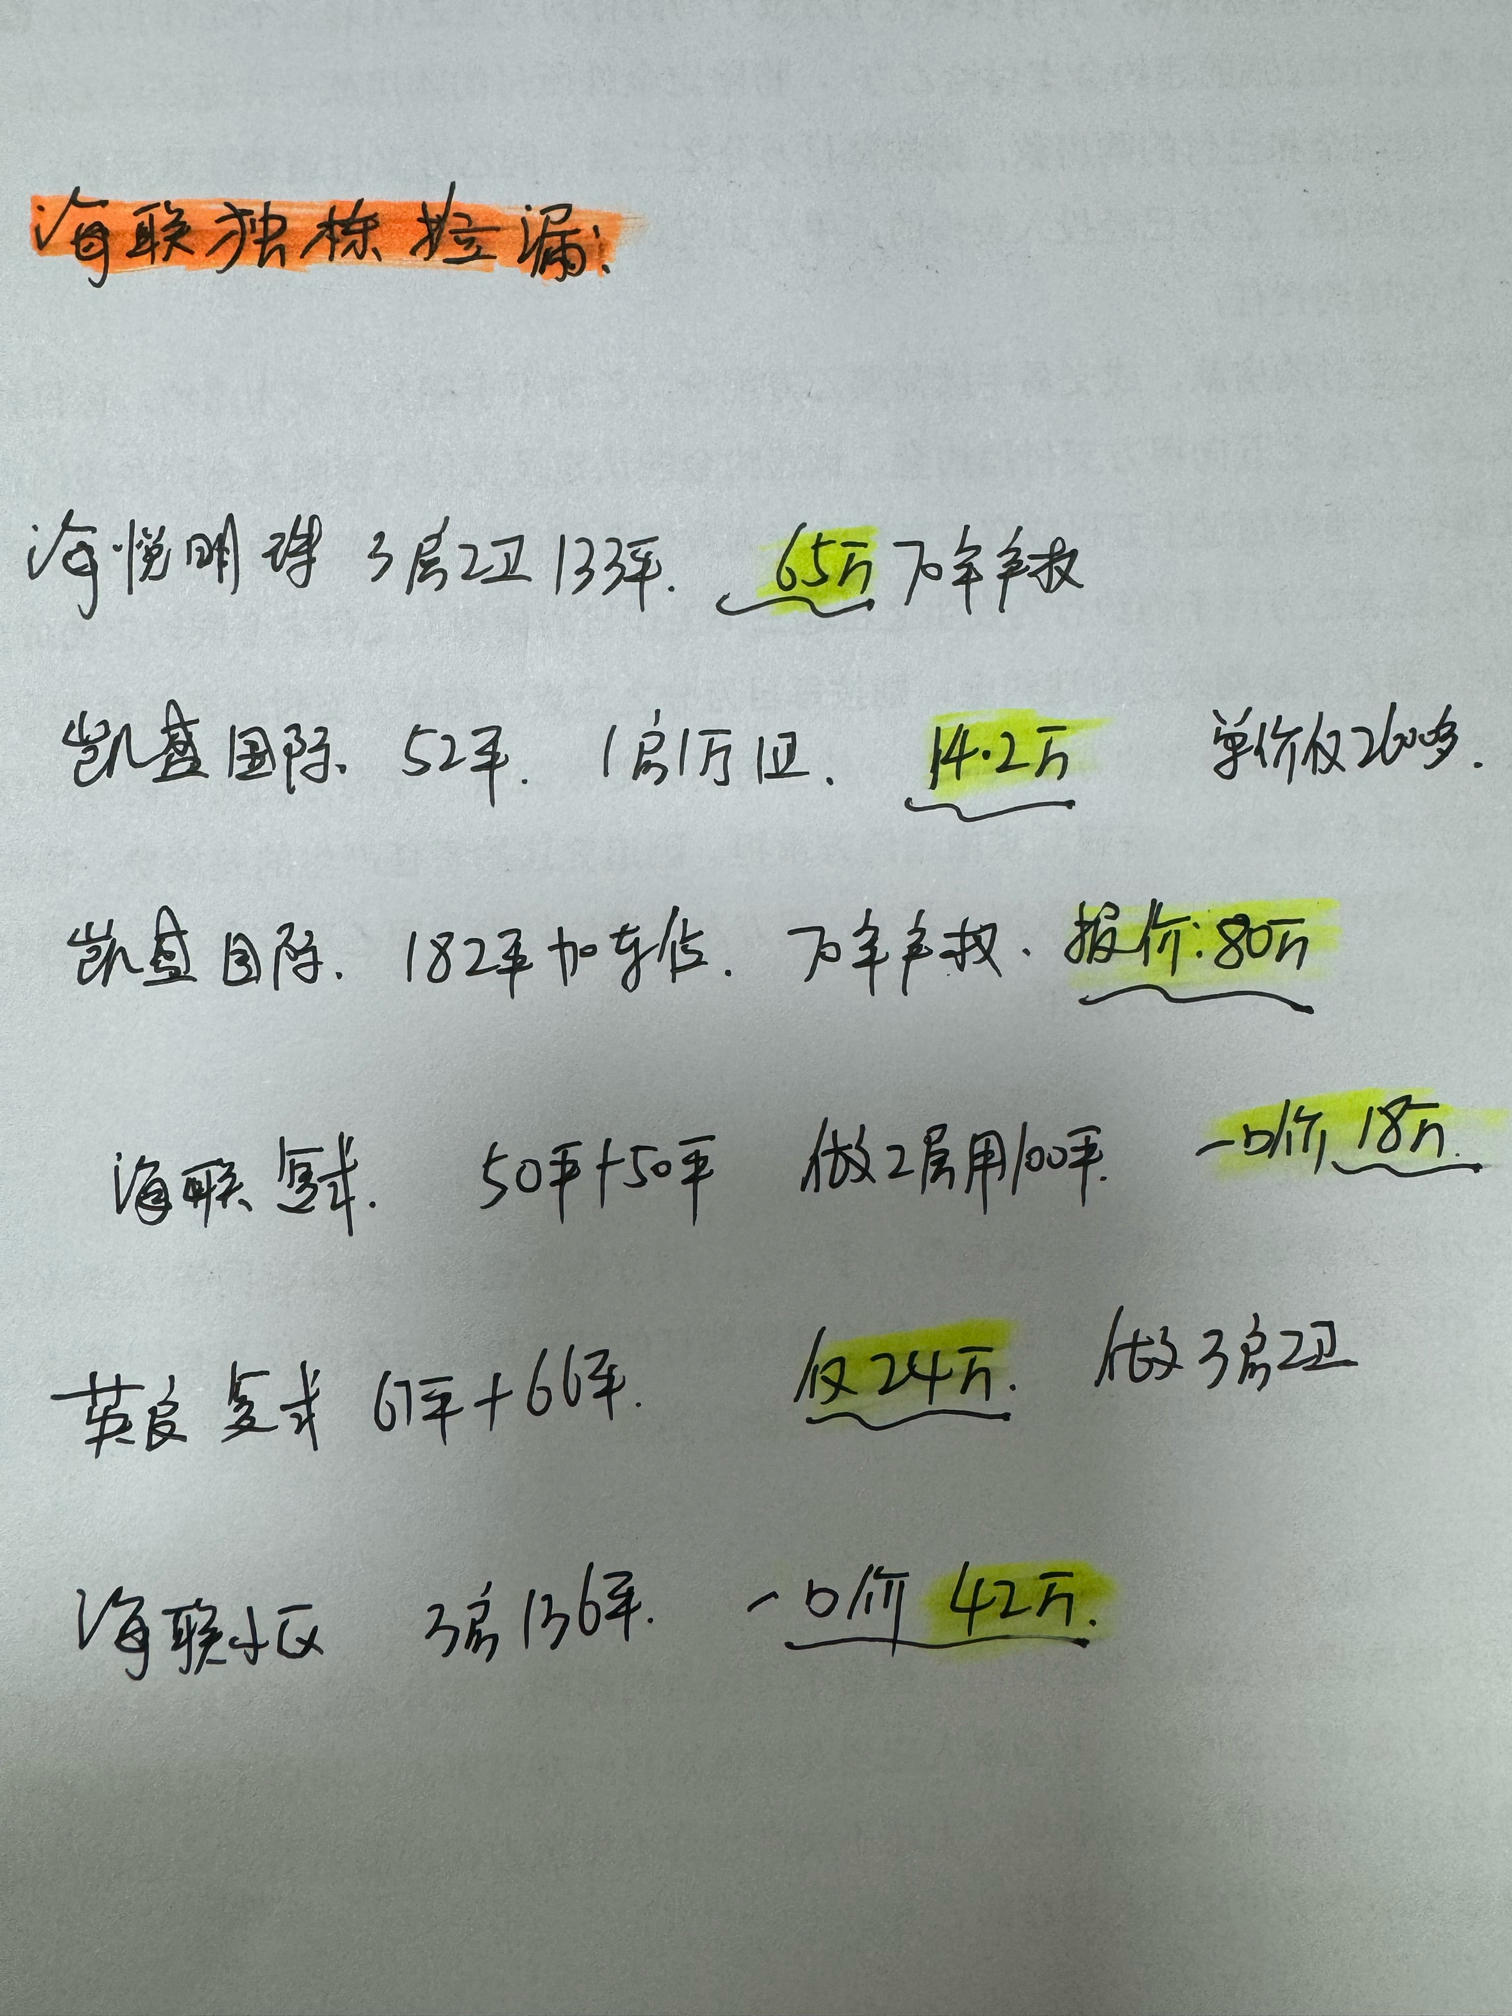 海联独栋捡漏:
海悦明珠 3房2卫 133平. 65万 70年产权
凯盛国际. 52平. 1房1厅1卫. 14.2万 单价仅2600多.
凯盛国际. 182平加车位. 70年产权. 报价:80万
海联复式. 50平+50平 做2层用100平. 一口价 18万.
英良复式 67平+66平. 仅24万. 做3房2卫
海联小区 3房136平. 一口价 42万.